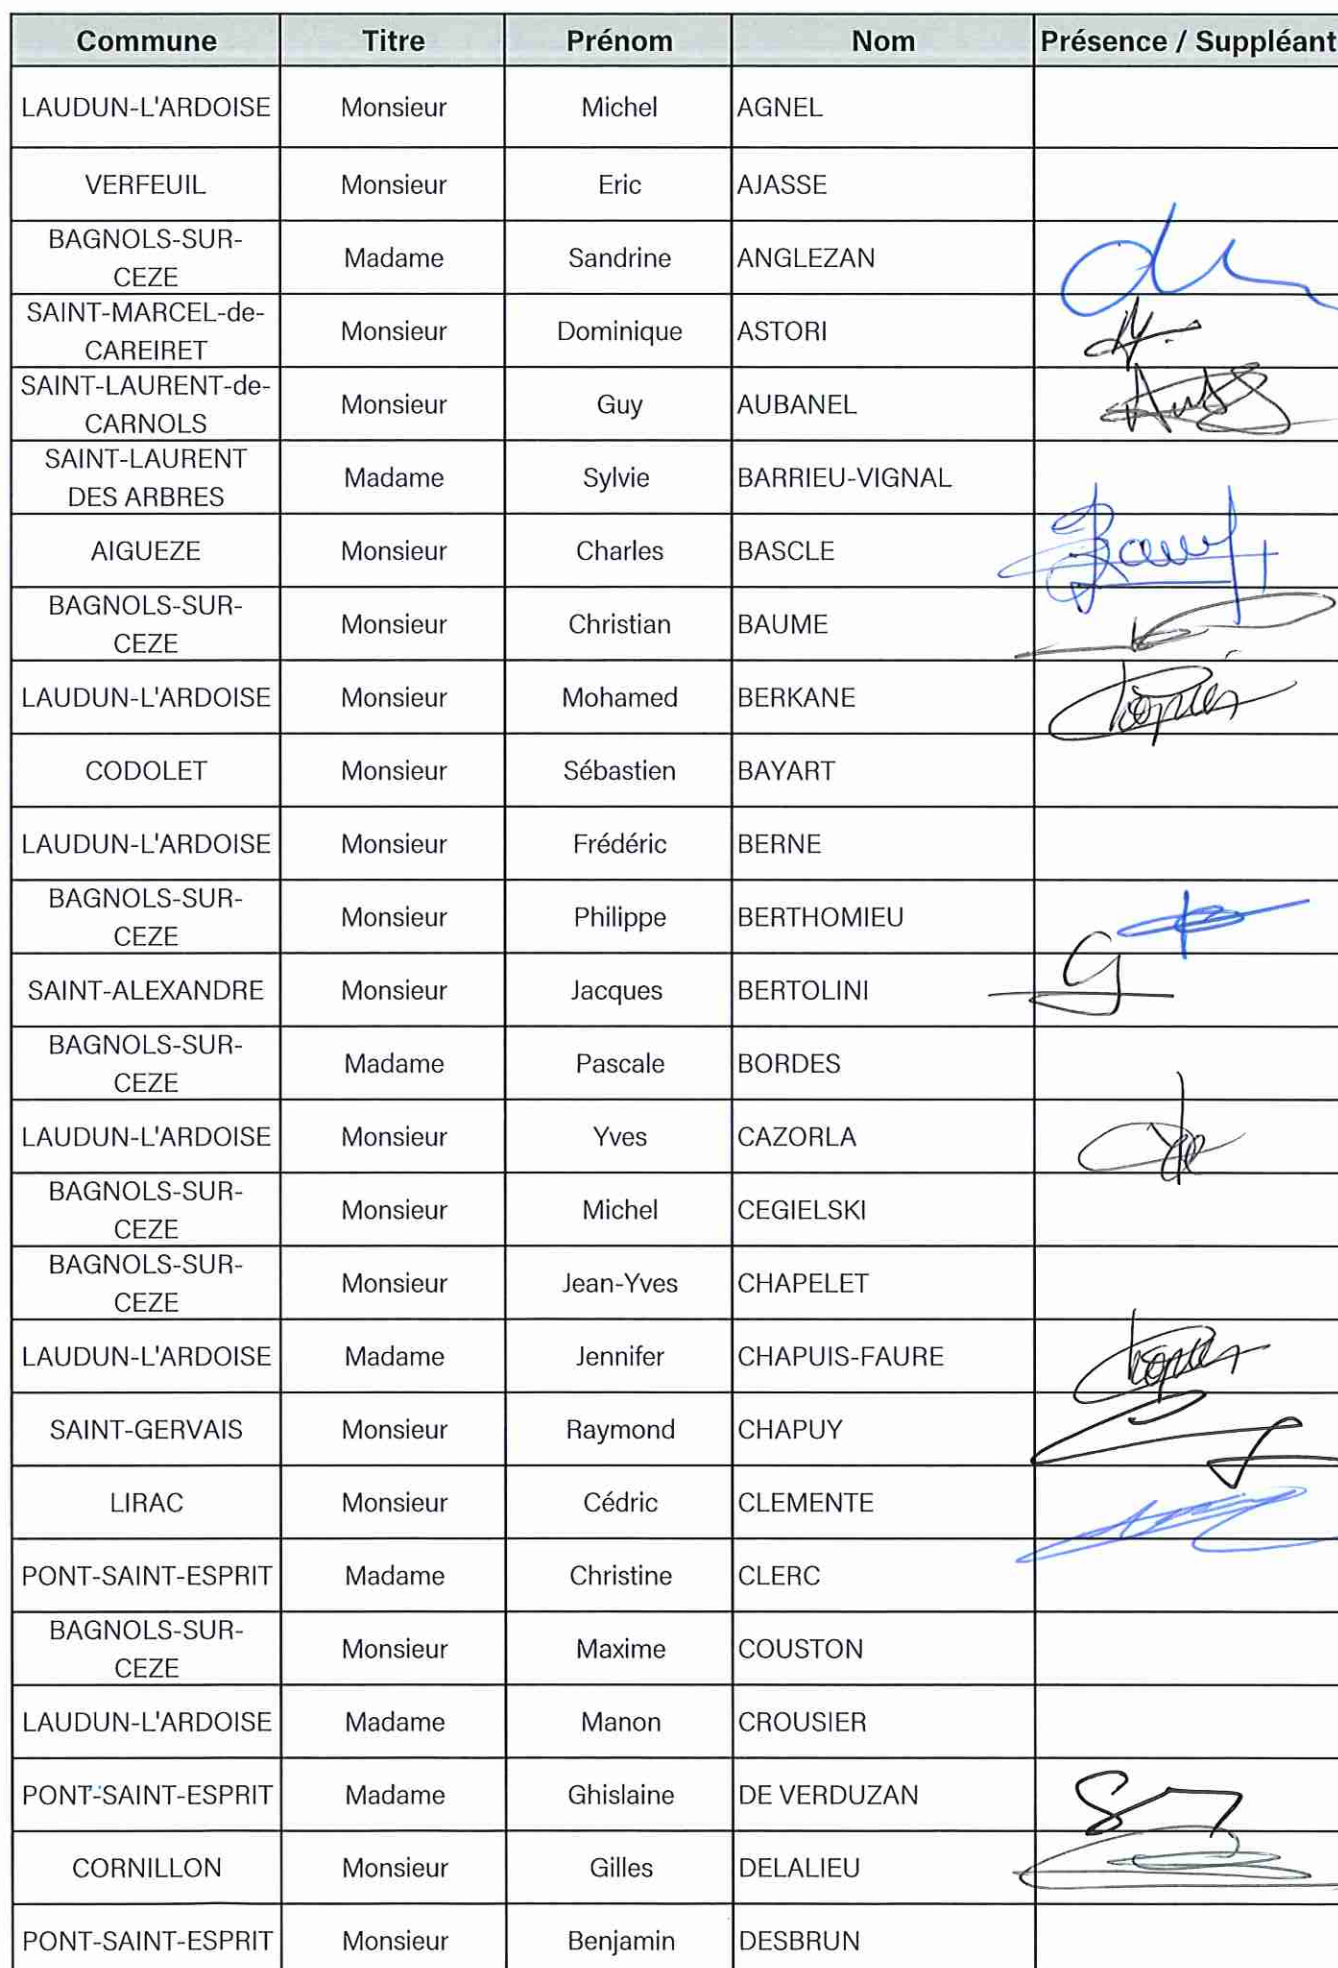 Commune Titre Prénom Nom Présence / Suppléant
LAUDUN-L'ARDOISE Monsieur Michel AGNEL
VERFEUIL Monsieur Eric AJASSE
BAGNOLS-SUR-
CEZE Madame Sandrine ANGLEZAN
SAINT-MARCEL-de-
CAREIRET Monsieur Dominique ASTORI
SAINT-LAURENT-de-
CARNOLS Monsieur Guy AUBANEL
SAINT-LAURENT
DES ARBRES Madame Sylvie BARRIEU-VIGNAL
AIGUEZE Monsieur Charles BASCLE
BAGNOLS-SUR-
CEZE Monsieur Christian BAUME
LAUDUN-L'ARDOISE Monsieur Mohamed BERKANE
CODOLET Monsieur Sébastien BAYART
LAUDUN-L'ARDOISE Monsieur Frédéric BERNE
BAGNOLS-SUR-
CEZE Monsieur Philippe BERTHOMIEU
SAINT-ALEXANDRE Monsieur Jacques BERTOLINI
BAGNOLS-SUR-
CEZE Madame Pascale BORDES
LAUDUN-L'ARDOISE Monsieur Yves CAZORLA
BAGNOLS-SUR-
CEZE Monsieur Michel CEGIELSKI
BAGNOLS-SUR-
CEZE Monsieur Jean-Yves CHAPELET
LAUDUN-L'ARDOISE Madame Jennifer CHAPUIS-FAURE
SAINT-GERVAIS Monsieur Raymond CHAPUY
LIRAC Monsieur Cédric CLEMENTE
PONT-SAINT-ESPRIT Madame Christine CLERC
BAGNOLS-SUR-
CEZE Monsieur Maxime COUSTON
LAUDUN-L'ARDOISE Madame Manon CROUSIER
PONT-SAINT-ESPRIT Madame Ghislaine DE VERDUZAN
CORNILLON Monsieur Gilles DELALIEU
PONT-SAINT-ESPRIT Monsieur Benjamin DESBRUN